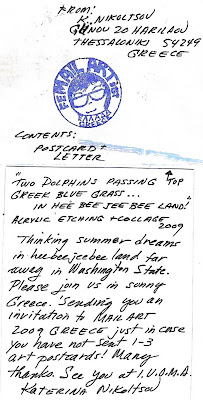 FROM:
K. NIKOLTSOV
20 HARILAOU
THESSALONIKI 54249
GREECE
MAIL ART
GREECE
CONTENTS:
POSTCARD +
LETTER
"TWO DOLPHINS PASSING ↑ TOP
GREEK BLUE GRASS...
IN HEE BEE JEE BEE LAND!
ACRYLIC ETCHING + COLLAGE
2009
Thinking summer dreams
in hee-bee-jee-bee land far
away in Washington State.
Please join us in sunny
Greece. Sending you an
invitation to MAIL ART
2009 GREECE just in case
you have not sent 1-3
art postcards! Many
thanks. See you at I.U.O.M.A.
KATERINA NIKOLTSOV